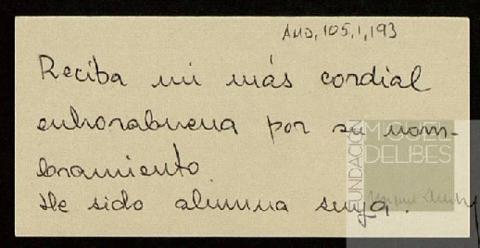 AMD, 105, 1, 193
Reciba mi más cordial
enhorabuena por su nom-
bramiento.
He sido alumna suya.
FUNDACIÓN
MIGUEL
DELIBES